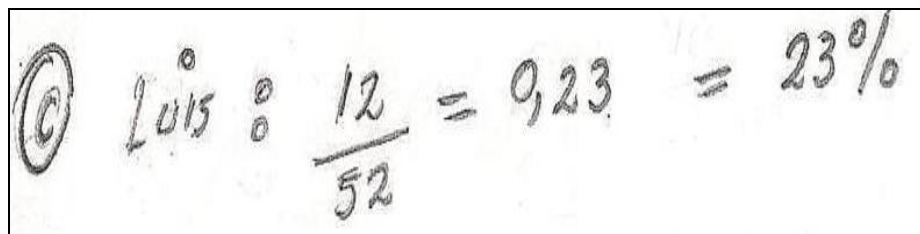 Ⓒ Luis: 12/52 = 0,23 = 23%